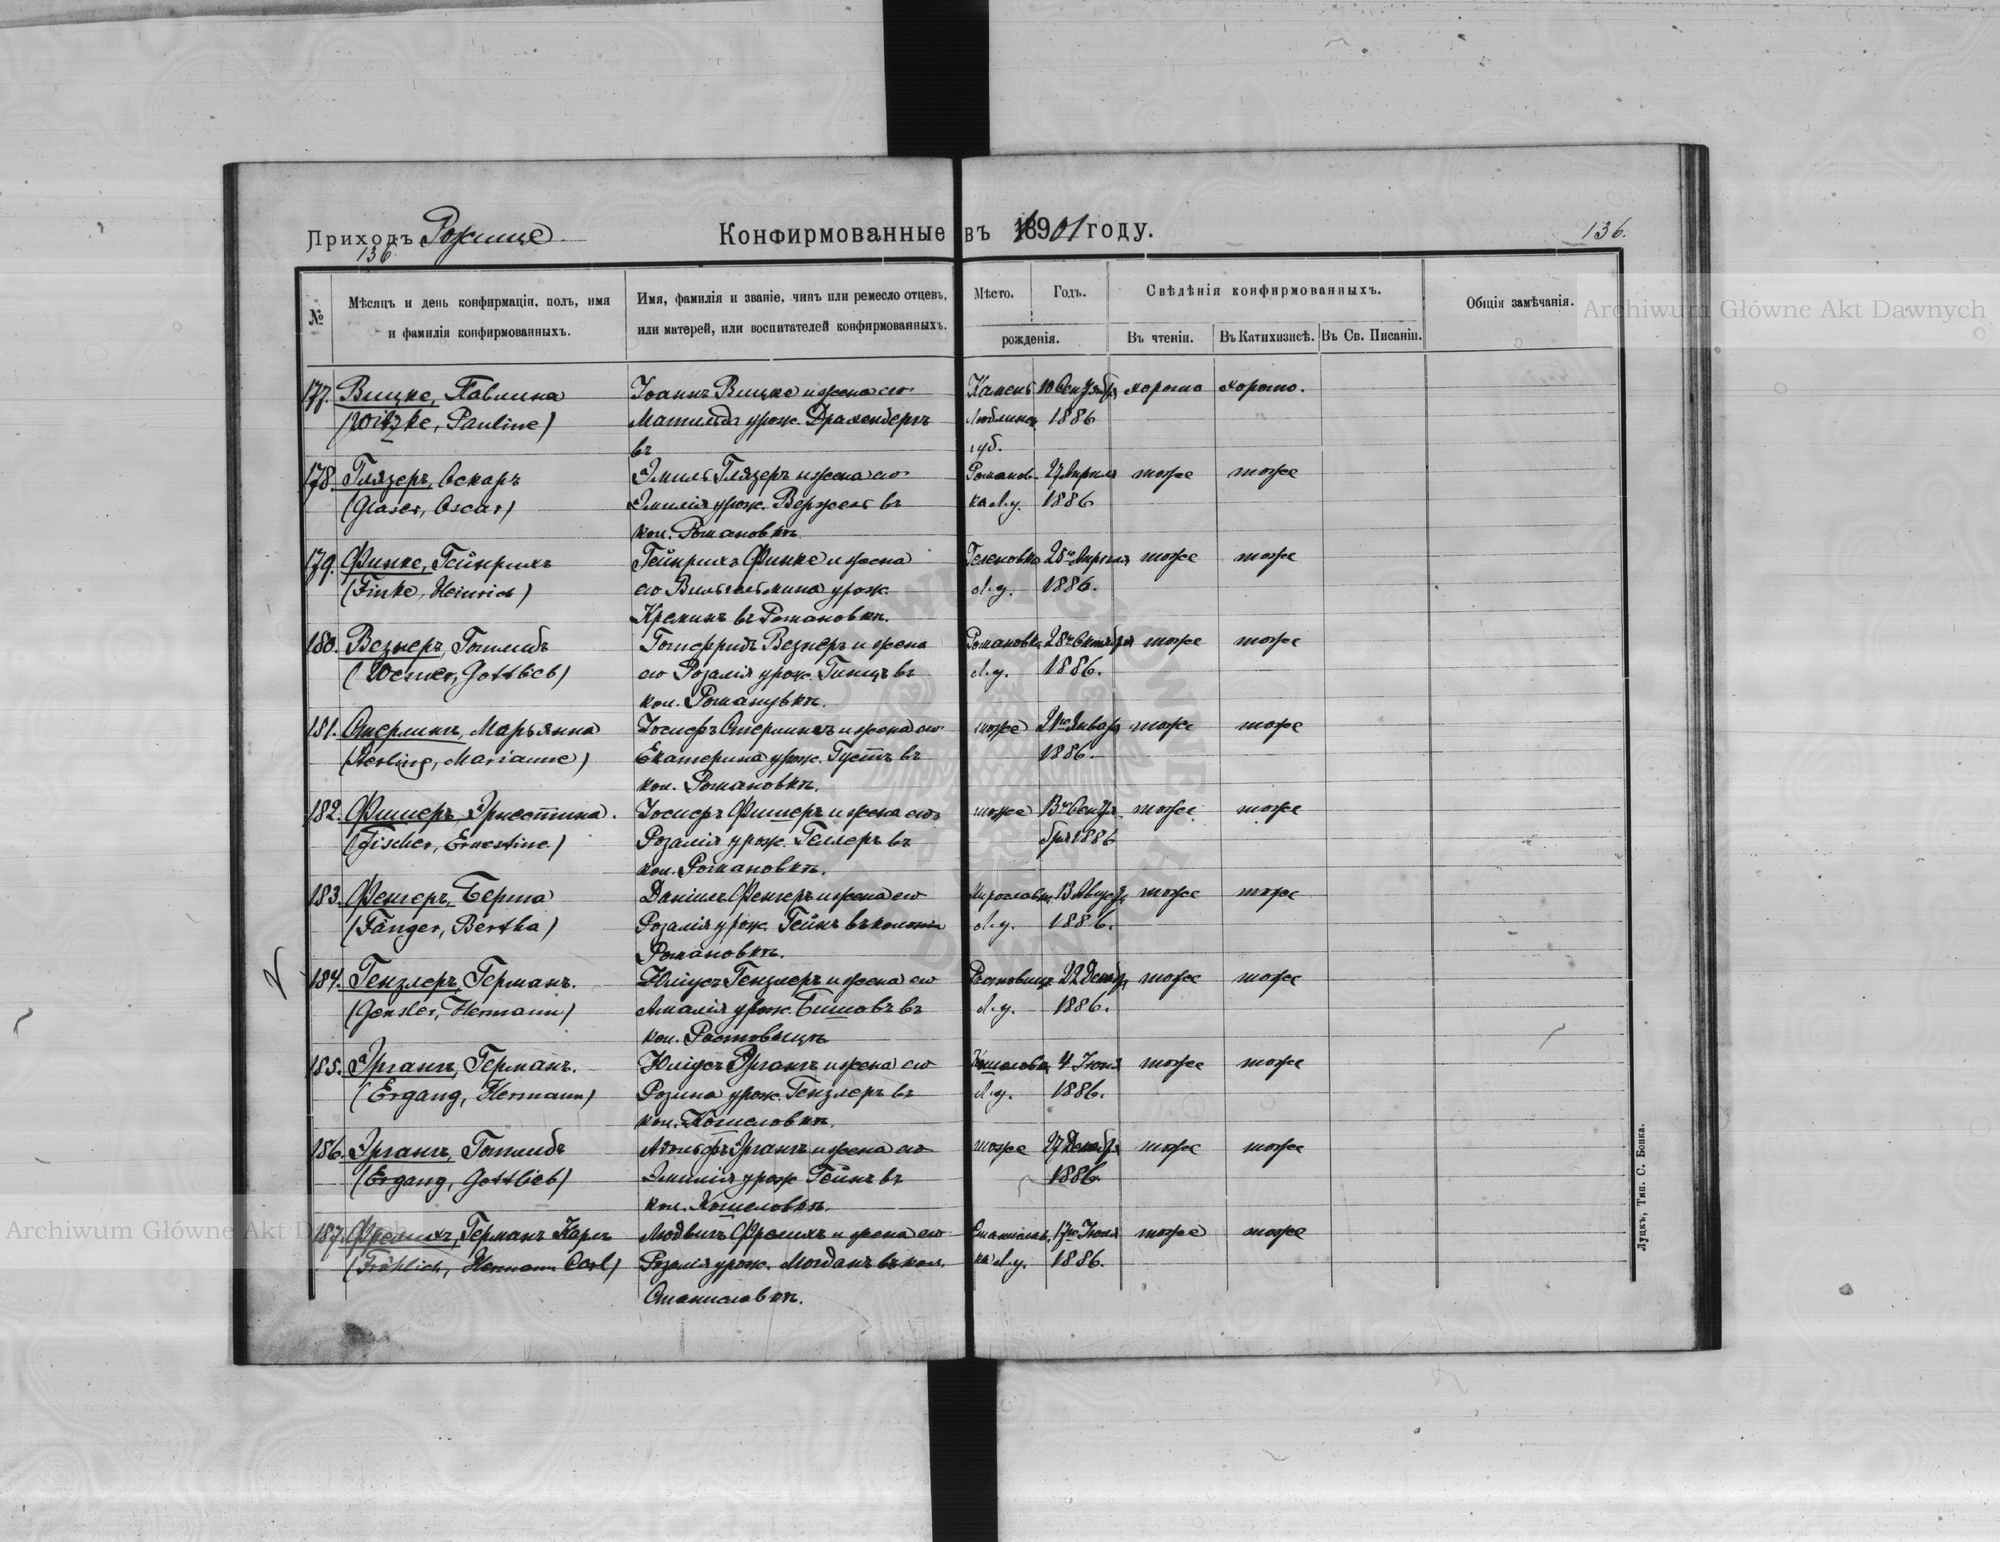 Приходъ Рожище
136
Конфирмованные въ 1901 году.
136.
№
Мѣсяцъ и день конфирмаціи, полъ, имя
и фамилія конфирмованныхъ.
Имя, фамилія и званіе, чинъ или ремесло отцевъ,
или матерей, или воспитателей конфирмованныхъ.
Мѣсто.
Годъ.
рожденія.
Свѣдѣнія конфирмованныхъ.
Въ чтеніи.
Въ Катихизисѣ.
Въ Св. Писаніи.
Общія замѣчанія.
177. Вицке, Павлина
(Witzke, Pauline)
Іоаннъ Вицке и жена его
Матильда урож.
въ
Камень
Люблинск.
губ.
10 Сентября
1886
хорошо
хорошо.
178. Глязеръ, Оскаръ
(Glaser, Oscar)
Эмилъ Глязеръ и жена его
Эмилія урож. въ
кол. Романовкѣ.
Романов-
ка Л.у.
27 Апреля
1886
тоже
тоже
179. Финке, Гейнрихъ
(Finke, Heinrich)
Гейнрихъ Финке и жена
его Вильгельмина урож.
въ Романовкѣ.
Геленовка
Л.у.
25го Апреля
1886.
тоже
тоже
180. Везнеръ, Готлибъ
(Wesner, Gottlieb)
Готфридъ Везнеръ и жена
его Розалія урож. въ
кол. Романувкѣ.
Романовка
Л.у.
28го Октября
1886.
тоже
тоже
181. Стерлинъ, Марьянна
(Sterling, Marianne)
Іосифъ Стерлингъ и жена его
Екатерина урож. въ
кол. Романовкѣ.
тоже
21го Января
1886.
тоже
тоже
182. Фишеръ, Эрнестина.
(Fischer, Ernestine)
Іосифъ Фишеръ и жена его
Розалія урож. Геллеръ въ
кол. Романовкѣ.
тоже
13го Сентя
бря 1886
тоже
тоже
183. Фенгеръ, Берта
(Fänger, Bertha)
Даніилъ Фенгеръ и жена его
Розалія урож. Гейнъ въ колоніи
Романовкѣ.
Мирославка
Л.у.
13 Августа
1886.
тоже
тоже
184. Гензлеръ, Германъ.
(Gensler, Hermann)
Юліусъ Гензлеръ и жена его
Амалія урож. Бишовъ въ
кол. Ростовыцѣ
Ростовище
Л.у.
22 Декабр.
1886.
тоже
тоже
185. Эргангъ, Германъ.
(Ergang, Hermann)
Юліусъ Эргангъ и жена его
Розина урож. Гензлеръ въ
кол. Кошеловкѣ.
Кошеловка
Л.у.
4 Іюня
1886.
тоже
тоже
186. Эргангъ, Готлибъ
(Ergang, Gottlieb)
Адольфъ Эргангъ и жена его
Эмилія урож. Гейнъ въ
кол. Кошеловкѣ.
тоже
27 Декабр.
1886.
тоже
тоже
187. Фрелихъ, Германъ Карлъ
(Fröhlich, Hermann Carl)
Людвигъ Фрелихъ и жена его
Розалія урож. въ кол.
Станиславкѣ.
Станислав-
ка Л.у.
17го Іюля
1886.
тоже
тоже
Луцкъ, Тип. С. Бонка.
Archiwum Główne Akt Dawnych
Archiwum Główne Akt Dawnych